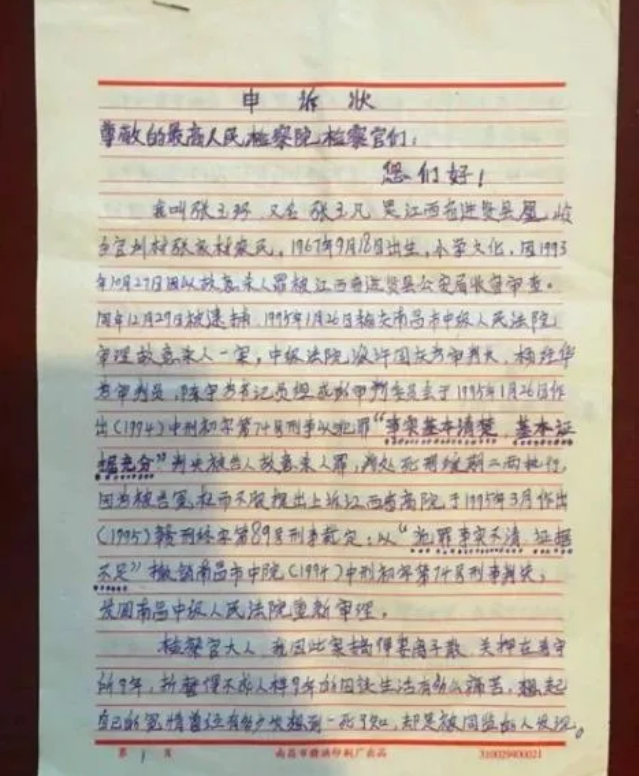 申诉状
尊敬的最高人民检察院检察官们:
您们好!
我叫张玉环,又名张玉凡 是江西省进贤县凰岭
乡宫圳村张家村农民,1967年9月18日出生,小学文化,因1993
年10月27日因以故意杀人罪被江西省进贤县公安局收容审查。
同年12月29日被逮捕,1995年1月26日南昌市中级人民法院
审理故意杀人一案,中级法院
为审判员,陈宁为书记员组成的审判委员会于1995年1月26日作
出(1994)中刑初字第74号刑事以犯罪“事实基本清楚,基本证
据充分”判决被告人故意杀人罪,判处死刑缓期二两执行,
因为被告冤枉而不服提出上诉江西省高院,于1995年3月作出
(1995)赣刑终字第89号刑事裁定:以“犯罪事实不清 证据
不足”撤销南昌市中院(1994)中刑初字第74号刑事判决,
发回南昌中级人民法院重新审理。
检察官大人,我因此案搞得妻离子散,关押在看守
所9年,折磨得不成人样9年的 生活有多么痛苦,想起
自己的冤情曾经有多少次想到一死了知,却是被同监的人发现。
第 1 页
南昌市赣洪印刷厂出品
310029400021